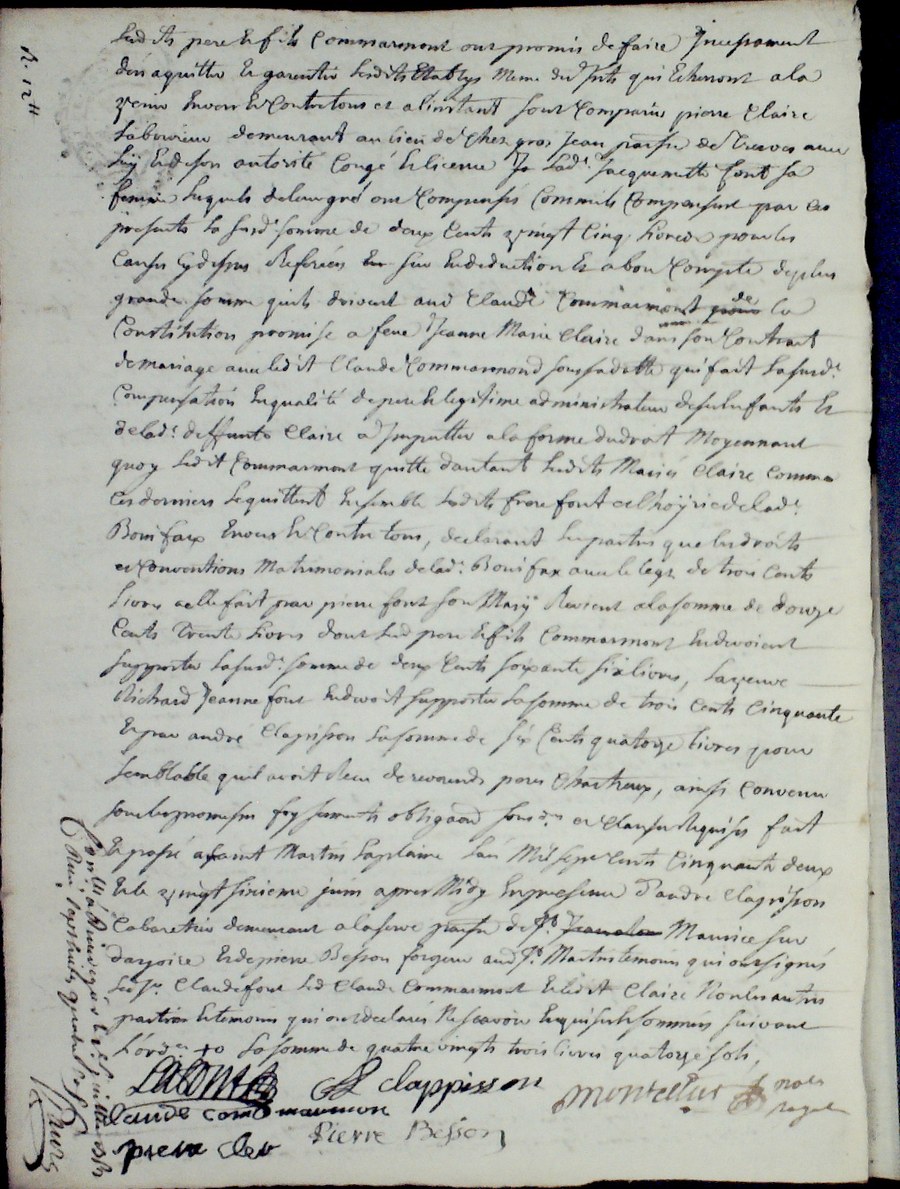 Lesdits pere et fils Commarmont ont promis de faire Incessament
acquitter et garentir lesdits Etablys meme des Ints qui Echeront a la
venir Envers et Contre tous et a l'instant sont Comparus pierre Claire
Laboureur demeurant au lieu de Chez gros Jean parsse de Treves avec
luy Et de son autorité Congé et licence Jacquemette font sa
femme lesquels de leur gré ont Compensés Comme ils Compensent par ces
presents la susd. somme de deux Cents vingt Cinq livres pour les
Causes Cy dessus Referées Sur Et deduction Et a bon Compte de plus
grande somme quils doivent aud Claude Commarmont de la
Constitution promise a feue Jeanne Marie Claire dans son Contract
de mariage avec ledit Claude Commarmond qui fait la susd.
Compensation En qualité de pere et legitime administrateur de ses Enfants Et
de lad. deffunte Claire a Imputter a la forme du droit Moyennant
quoy ledit Commarmont quitte d'autant lesdits Mariés Claire Comme
Ces derniers le quittent Ensemble lesdits frere font et l'hoyrie de lad.
Bonifax Envers et Contre tous, declarant les parties que les droits
et Conventions Matrimoniales de lad. Bonifax avec le legs de trois Cents
livres a elle fait par pierre font son Mary Revient a la somme de douze
Cents Trente livres dont lesd pere et fils Commarmont En devoient
supporter la susd. somme de deux Cents soixante six livres, la veuve
Richard Jeanne font En devoit supporter la somme de trois Cents Cinquante
Et par andré Clapisson la somme de six Cents quatorze livres pour
semblable quil avoit Reçu de reverends peres Chartreux, ainsi Convenu
sous les promesses foy serments obligaons sous.ons et Clauses Requises fait
Et passé a saint Martin la plaine l'an Mil sept Cents Cinquante deux
Et le vingt sixieme juin apres Midy En presence d'andré Clapisson
Cabaretier demeurant a la parsse de St. Maurice sur
dargoire Et de pierre Besson forgeur aud St. Martin temoins qui ont signés
Les Sr. Claude font Led Claude Commarmont Et ledit Claire Non les autres
parties Et temoins qui ont declarés Ne sçavoir Enquis et sommés suivant
L'ord.ce la somme de quatre vingts trois livres quatorze sols,
Lafont Clappisson
Claude Commarmon Montellier nore royal
Pierre Besson
piere cler
R. 12tt